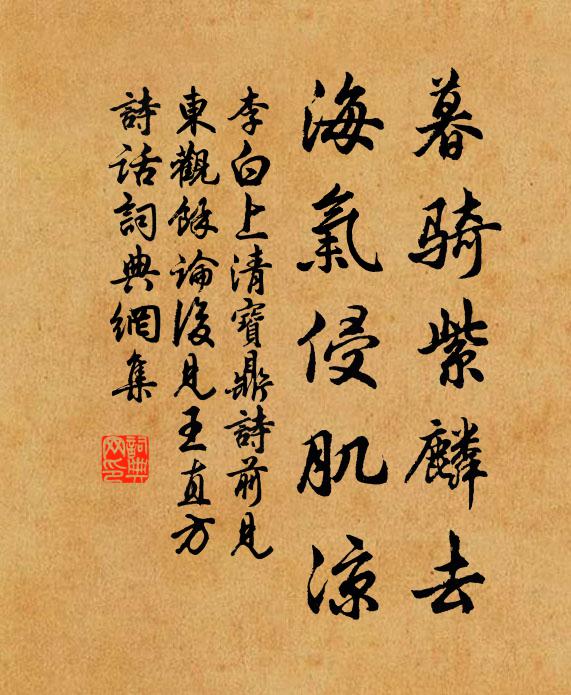 暮騎紫麟去
海氣侵肌涼
李白上清寶鼎詩前見
東觀餘論後見王直方
詩話詞典網集
詞典
网印